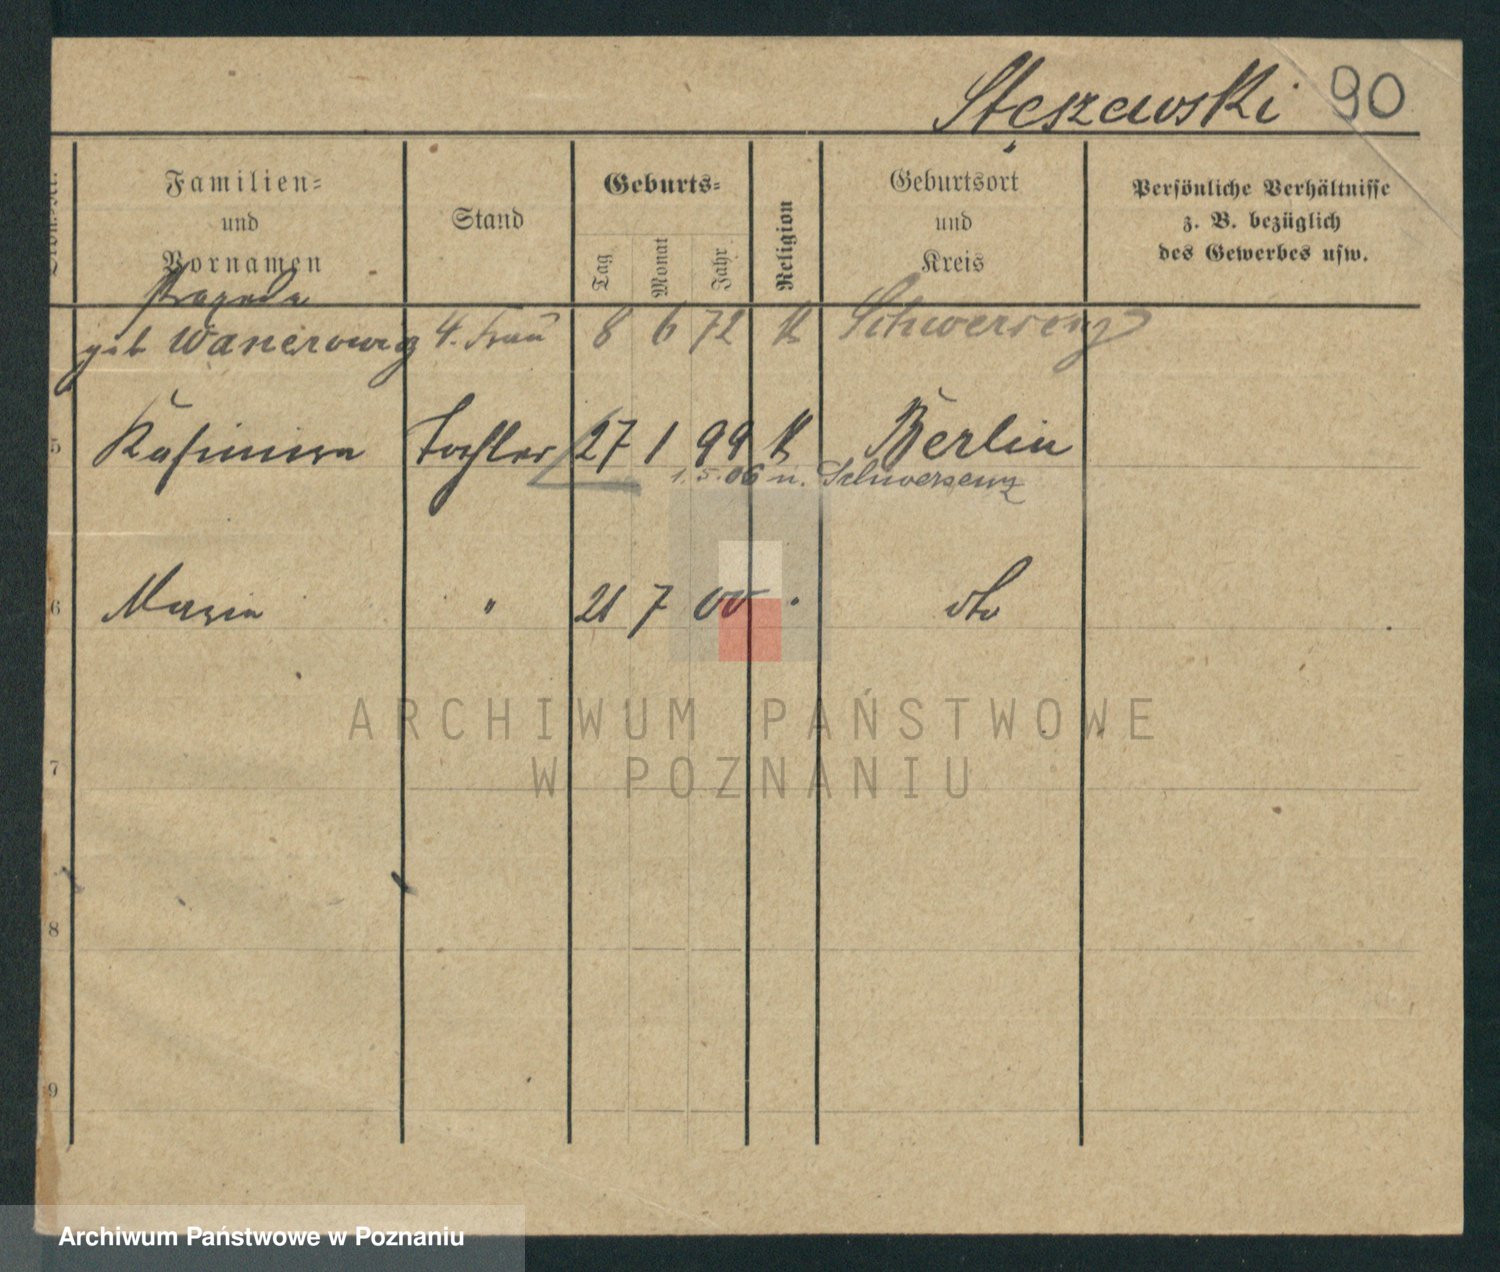 Stęszewski 90
Familien=
und
Vornamen
Stand
Geburts=
Tag
Monat
Jahr
Religion
Geburtsort
und
Kreis
Persönliche Verhältnisse
z. B. bezüglich
des Gewerbes usw.
geb 4. Frau 8 6 72 k Schwersenz
5 Kasimira Tochter 27 1 99 k Berlin
1.5.06 n. Schwersenz
6 Maria " 21 7 00 . dto
7
8
9
ARCHIWUM PAŃSTWOWE
W POZNANIU
Archiwum Państwowe w Poznaniu